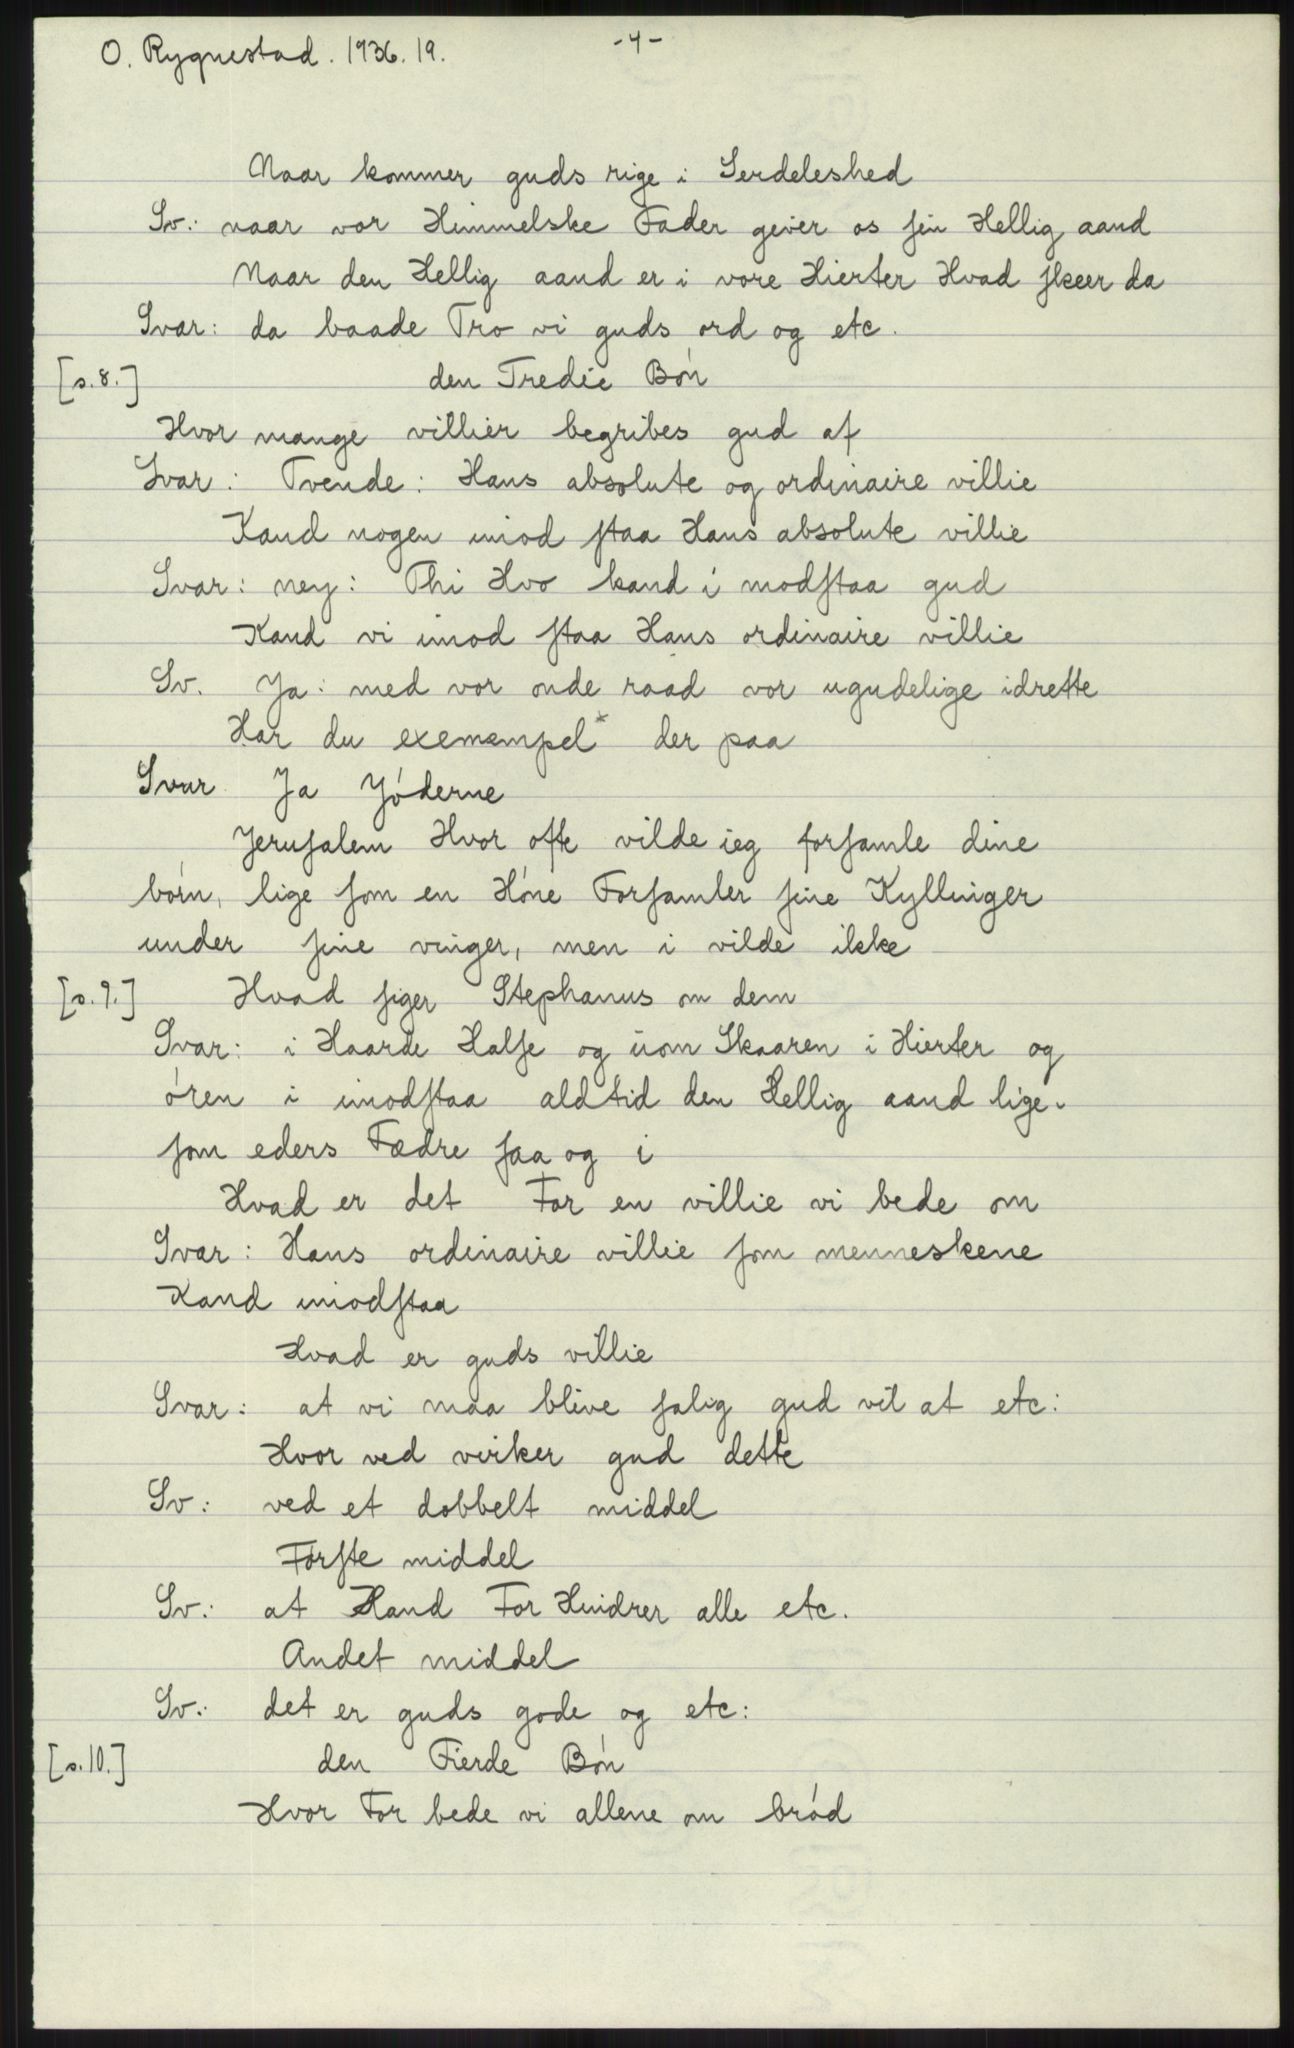 O. Rygnestad. 1936. 19.
- 4 -
Naar kommer guds rige i Serdeleshed
Sv.: naar vor Himmelske Fader gever os sin Hellig aand
Naar den Hellig aand er i vore Hierter Hvad skeer da
Svar: da baade Tro vi guds ord og etc.
[s. 8.] den Tredie Bón
Hvor mange villier begribes gud af
Svar: Tvende: Hans absolute og ordinaire villie
Kand nogen imod staa Hans absolute villie
Svar: ney: Thi Hvo kand i modstaa gud
Kand vi imod staa Hans ordinaire villie
Sv. Ja: med vor onde raad vor ugudelige idrette
Har du exemempel* der paa
Svar Ja Jóderne
Jerusalem Hvor ofte vilde ieg forsamle dine
bórn, lige som en Hóne Forsamler sine Kyllinger
under sine vinger, men i vilde ikke
[s. 9.] Hvad siger Stephanus om dem
Svar: i Haarde Halse og uom Skaaren i Hierter og
óren i imodstaa aldtid den Hellig aand lige-
som eders Fædre saa og i
Hvad er det For en villie vi bede om
Svar: Hans ordinaire villie som menneskene
Kand imodstaa
Hvad er guds villie
Svar: at vi maa blive salig gud vil at etc:
Hvor ved virker gud dette
Sv: ved et dobbelt middel
Fórste middel
Sv.: at Hand For Hindrer alle etc.
Andet middel
Sv.: det er guds gode og etc:
[s. 10.] den Fierde Bón
Hvor For bede vi allene om bród